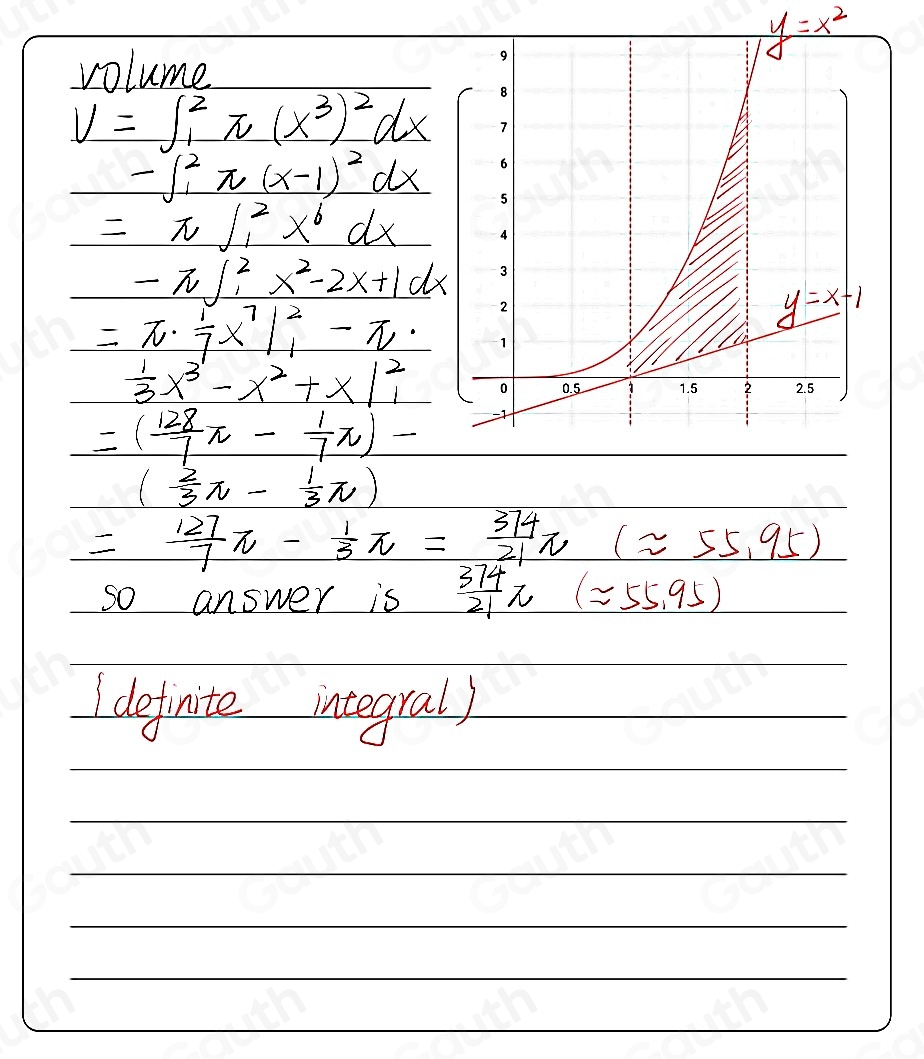 volume
V = ∫₁² π (x³)² dx
- ∫₁² π (x-1)² dx
= π ∫₁² x⁶ dx
- π ∫₁² x²-2x+1 dx
= π · 1/7 x⁷ |₁² - π ·
1/3 x³ - x² + x |₁²
= (128/7 π - 1/7 π) -
(2/3 π - 1/3 π)
= 127/7 π - 1/3 π = 374/21 π (≈ 55.95)
so answer is 374/21 π (≈55.95)
{definite integral}
y = x²
9
8
7
6
5
4
3
2
1
y = x-1
0 0.5 1 1.5 2 2.5
-1
Gauth